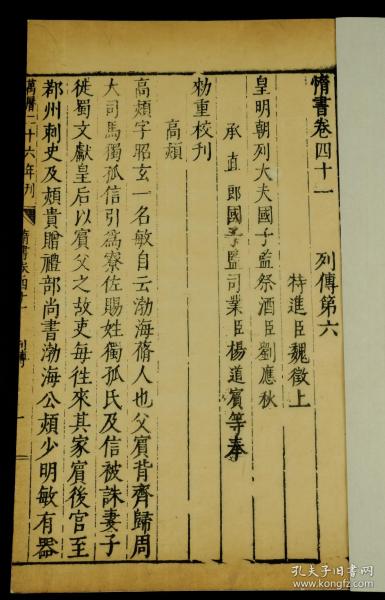 隋書卷四十一　列傳第六
特進臣魏徵上
皇明朝列大夫國子監祭酒臣劉應秋
承直郎國子監司業臣楊道賓等奉
勑重校刊
高熲
高熲字昭玄一名敏自云渤海蓨人也父賓背齊歸周
大司馬獨孤信引爲寮佐賜姓獨孤氏及信被誅妻子
徙蜀文獻皇后以賓父之故吏每往來其家賓後官至
鄀州刺史及熲貴贈禮部尚書渤海公熲少明敏有器
萬曆二十六年刊
隋書卷四十一
列傳
一
孔夫子旧书网